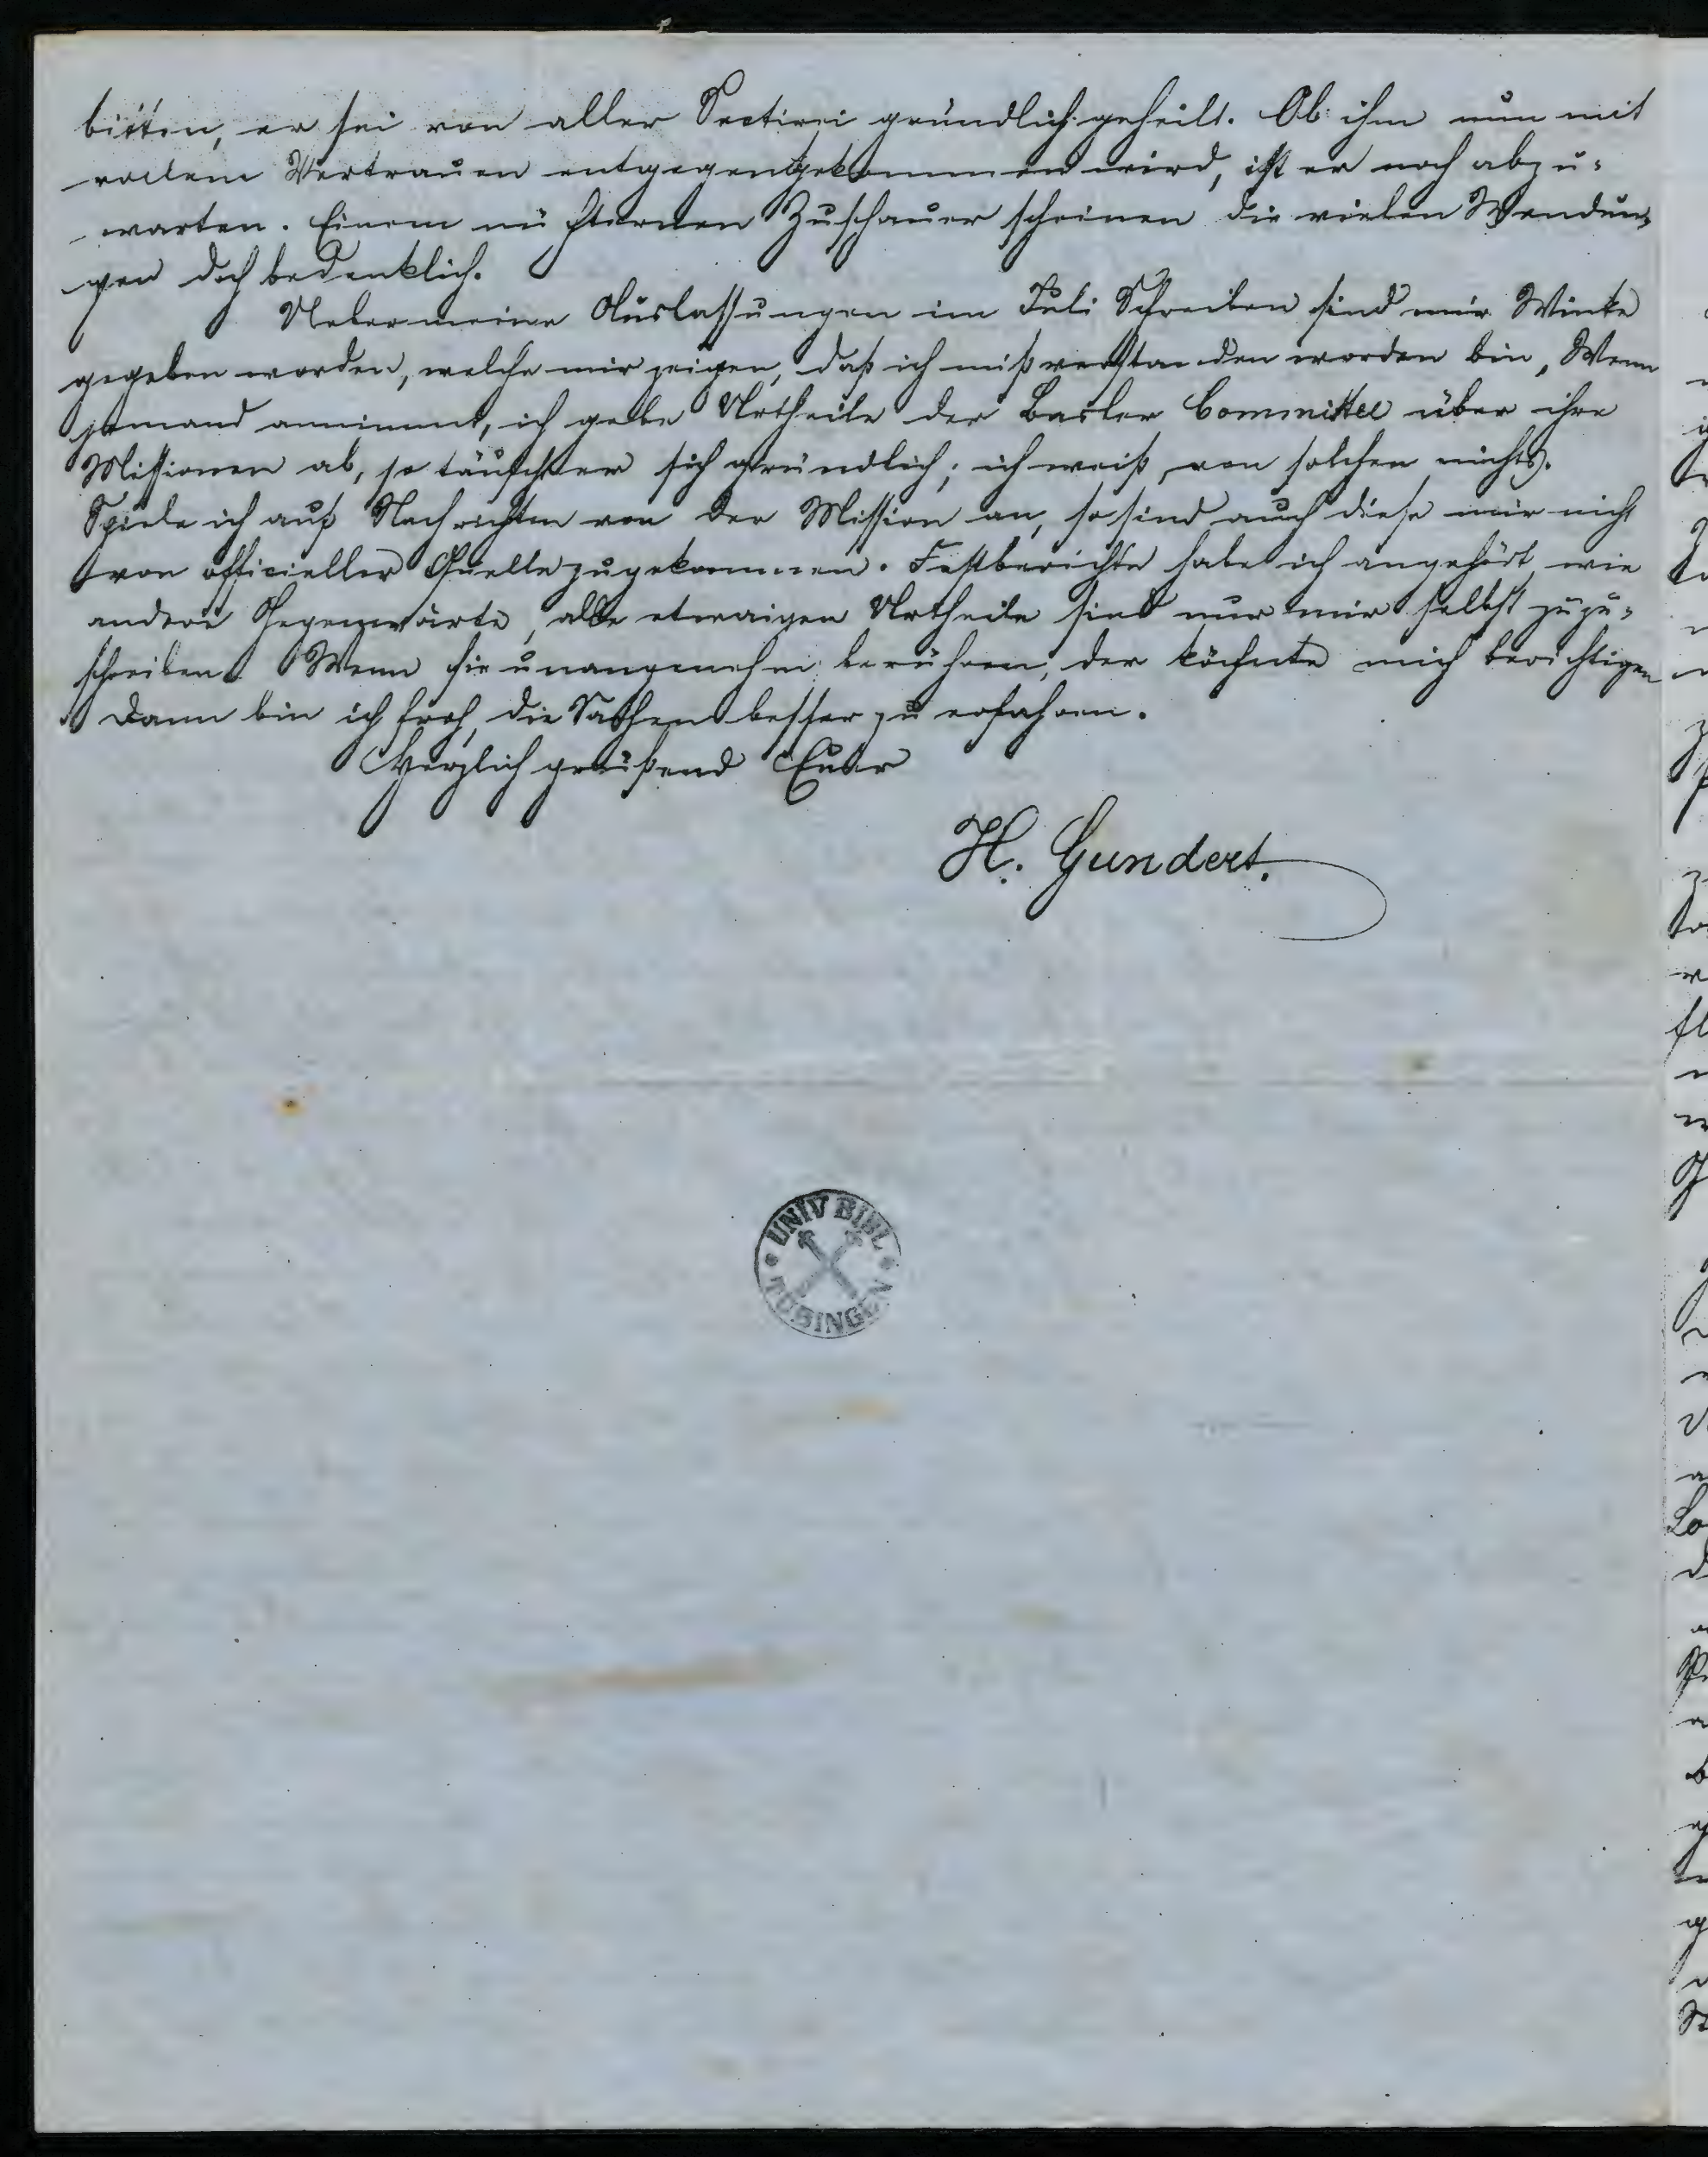 bieten, er sei von aller Sectirei gründlich geheilt. Ob ihm nun mit
vollem Vertrauen entgegengekommen wird, ist er noch abzu-
warten. Einem nüchternen Zuschauer scheinen die vielen Wendun-
gen doch bedenklich.
Ueber meine Auslassungen im Juli Schreiben sind mir Winke
gegeben worden, welche mir zeigen, daß ich mißverstanden worden bin. Wenn
jemand annimmt, ich gebe Urtheile der Basler Committee über ihre
Missionen ab, so täuscht er sich gründlich; ich weiß von solchen nichts.
Spiele ich auf Nachrichten von der Mission an, so sind auch diese mir nicht
von officieller Quelle zugekommen. Festberichte habe ich angehört wie
andere Gegenwärte, alle etwaigen Urtheile sind nur mir selbst zuzu-
schreiben. Wenn sie unangenehm berühren, der könnte mich berichtigen
Dann bin ich froh, die Sachen besser zu erfahren.
Herzlich grüßend Euer
H. Gundert.
UNIV BIBL
TÜBINGEN